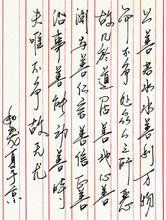 上善若水水善利万物
而不争处众人之所恶
故几於道居善地心善
渊与善仁言善信正善
治事善能动善时
夫唯不争故无尤